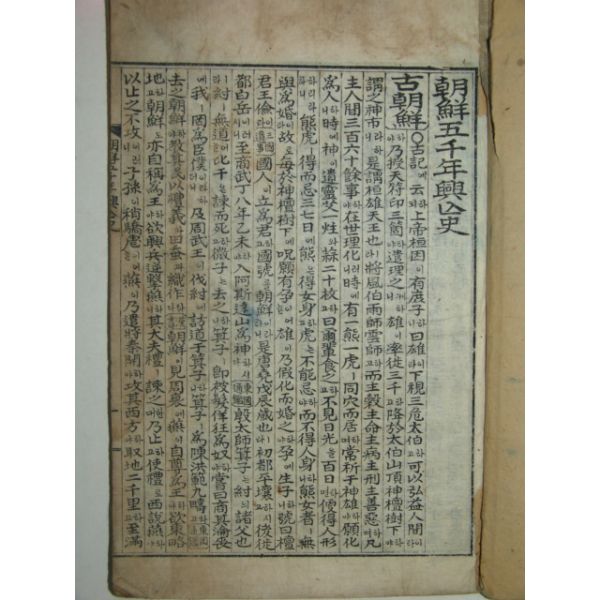 朝鮮五千年興亾史
古朝鮮 ○古記에云하되上帝桓因이有庶子하니曰雄이라下視三危太伯하고可以弘益人間이라
하야乃授天符印三箇하야遣理之하니雄이率徒三千하고降於太伯山頂神檀樹下하야
謂之神市라하니是謂桓雄天王也라將風伯雨師雲師하고而主穀主命主病主刑主善惡하며凡
主人間三百六十餘事하야在世理化러니時에有一熊一虎ㅣ同穴而居하며常祈于神雄하야願化
爲人하니時에神이遺靈艾一炷와蒜二十枚하고曰爾輩食之하고不見日光을百日이면便得人形
하리라하니熊虎ㅣ得而忌三七日에熊은得女身하고虎는不能忌하야而不得人身하니熊女者ㅣ無
與爲婚이라故로每於神檀樹下에呪願有孕이어늘雄이乃假化而婚之하야孕에生子하니號曰檀
君王倫이라國人이立爲君하고國號를朝鮮이라하니是唐堯戊辰歲也라初都平壤하고後徙
都白岳이러니至商武丁八年乙未하야入阿斯達山爲神하시다殷太師箕子는紂의諸父也
라紂ㅣ無道어늘比干은諫而死하고微子는去之하고箕子는卽被髮佯狂爲奴하야嘗曰商其淪喪
에我ㅣ罔爲臣僕이라하더니及周武王이伐紂에訪道于箕子한대箕子ㅣ爲陳洪範九疇하고
去之朝鮮하야教其民以禮義하며田蚕과織作하니朝鮮이見周衰에燕이自尊爲王하야欲東略
地하고朝鮮도亦自稱爲王하야欲興兵逆擊燕이러니其大夫禮ㅣ諫之어늘乃止하고使禮로西說燕하야
以止之不攻이러니子孫이稍驕虐이어늘燕이乃遣將秦開하야攻其西方하야取地二千里하고至滿